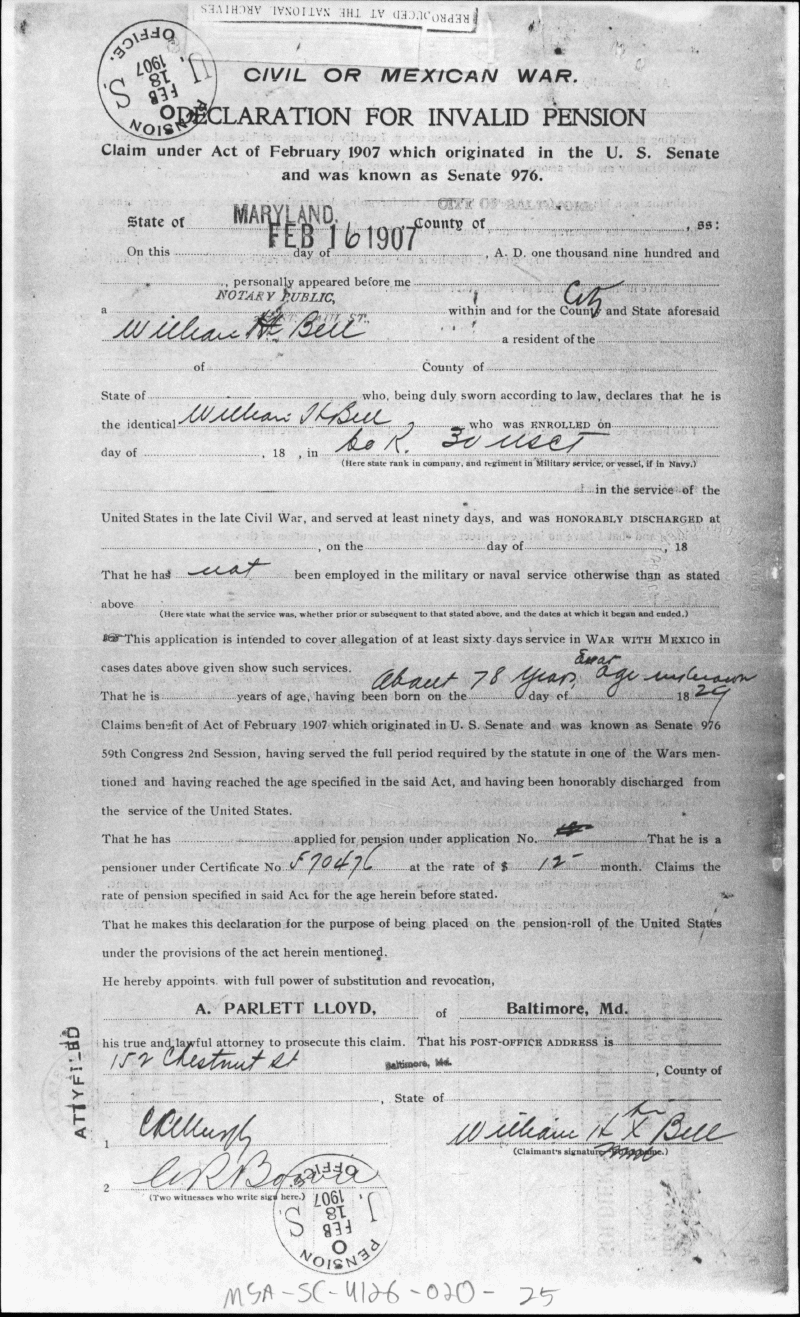 REPRODUCED AT THE NATIONAL ARCHIVES
U. S. PENSION OFFICE.
FEB
18
1907
CIVIL OR MEXICAN WAR.
DECLARATION FOR INVALID PENSION
Claim under Act of February 1907 which originated in the U. S. Senate
and was known as Senate 976.
CITY OF BALTIMORE
State of MARYLAND. County of , ss:
FEB 16 1907
On this day of , A. D. one thousand nine hundred and
, personally appeared before me
NOTARY PUBLIC, City
a within and for the County and State aforesaid
William H Bell a resident of the
of County of
State of who, being duly sworn according to law, declares that he is
the identical William H Bell who was ENROLLED on
day of , 18 , in Co K. 30 USCT
(Here state rank in company, and regiment in Military service, or vessel, if in Navy.)
in the service of the
United States in the late Civil War, and served at least ninety days, and was HONORABLY DISCHARGED at
, on the day of , 18
That he has not been employed in the military or naval service otherwise than as stated
above
(Here state what the service was, whether prior or subsequent to that stated above, and the dates at which it began and ended.)
This application is intended to cover allegation of at least sixty days service in WAR WITH MEXICO in
cases dates above given show such services.
About 78 years, Exact age unknown
That he is years of age, having been born on the day of 1829
Claims benefit of Act of February 1907 which originated in U. S. Senate and was known as Senate 976
59th Congress 2nd Session, having served the full period required by the statute in one of the Wars men-
tioned and having reached the age specified in the said Act, and having been honorably discharged from
the service of the United States.
That he has applied for pension under application No. That he is a
pensioner under Certificate No 570476 at the rate of $ 12 month. Claims the
rate of pension specified in said Act for the age herein before stated.
That he makes this declaration for the purpose of being placed on the pension-roll of the United States
under the provisions of the act herein mentioned.
He hereby appoints with full power of substitution and revocation,
A. PARLETT LLOYD, of Baltimore, Md.
his true and lawful attorney to prosecute this claim. That his POST-OFFICE ADDRESS is
152 Chestnut St Baltimore, Md. , County of
, State of
ATTY FILED
1 William H X Bell
(Claimant's signature
2
(Two witnesses who write sign here.)
U. S. PENSION OFFICE
FEB
18
1907
MSA-SC-4126-020-25